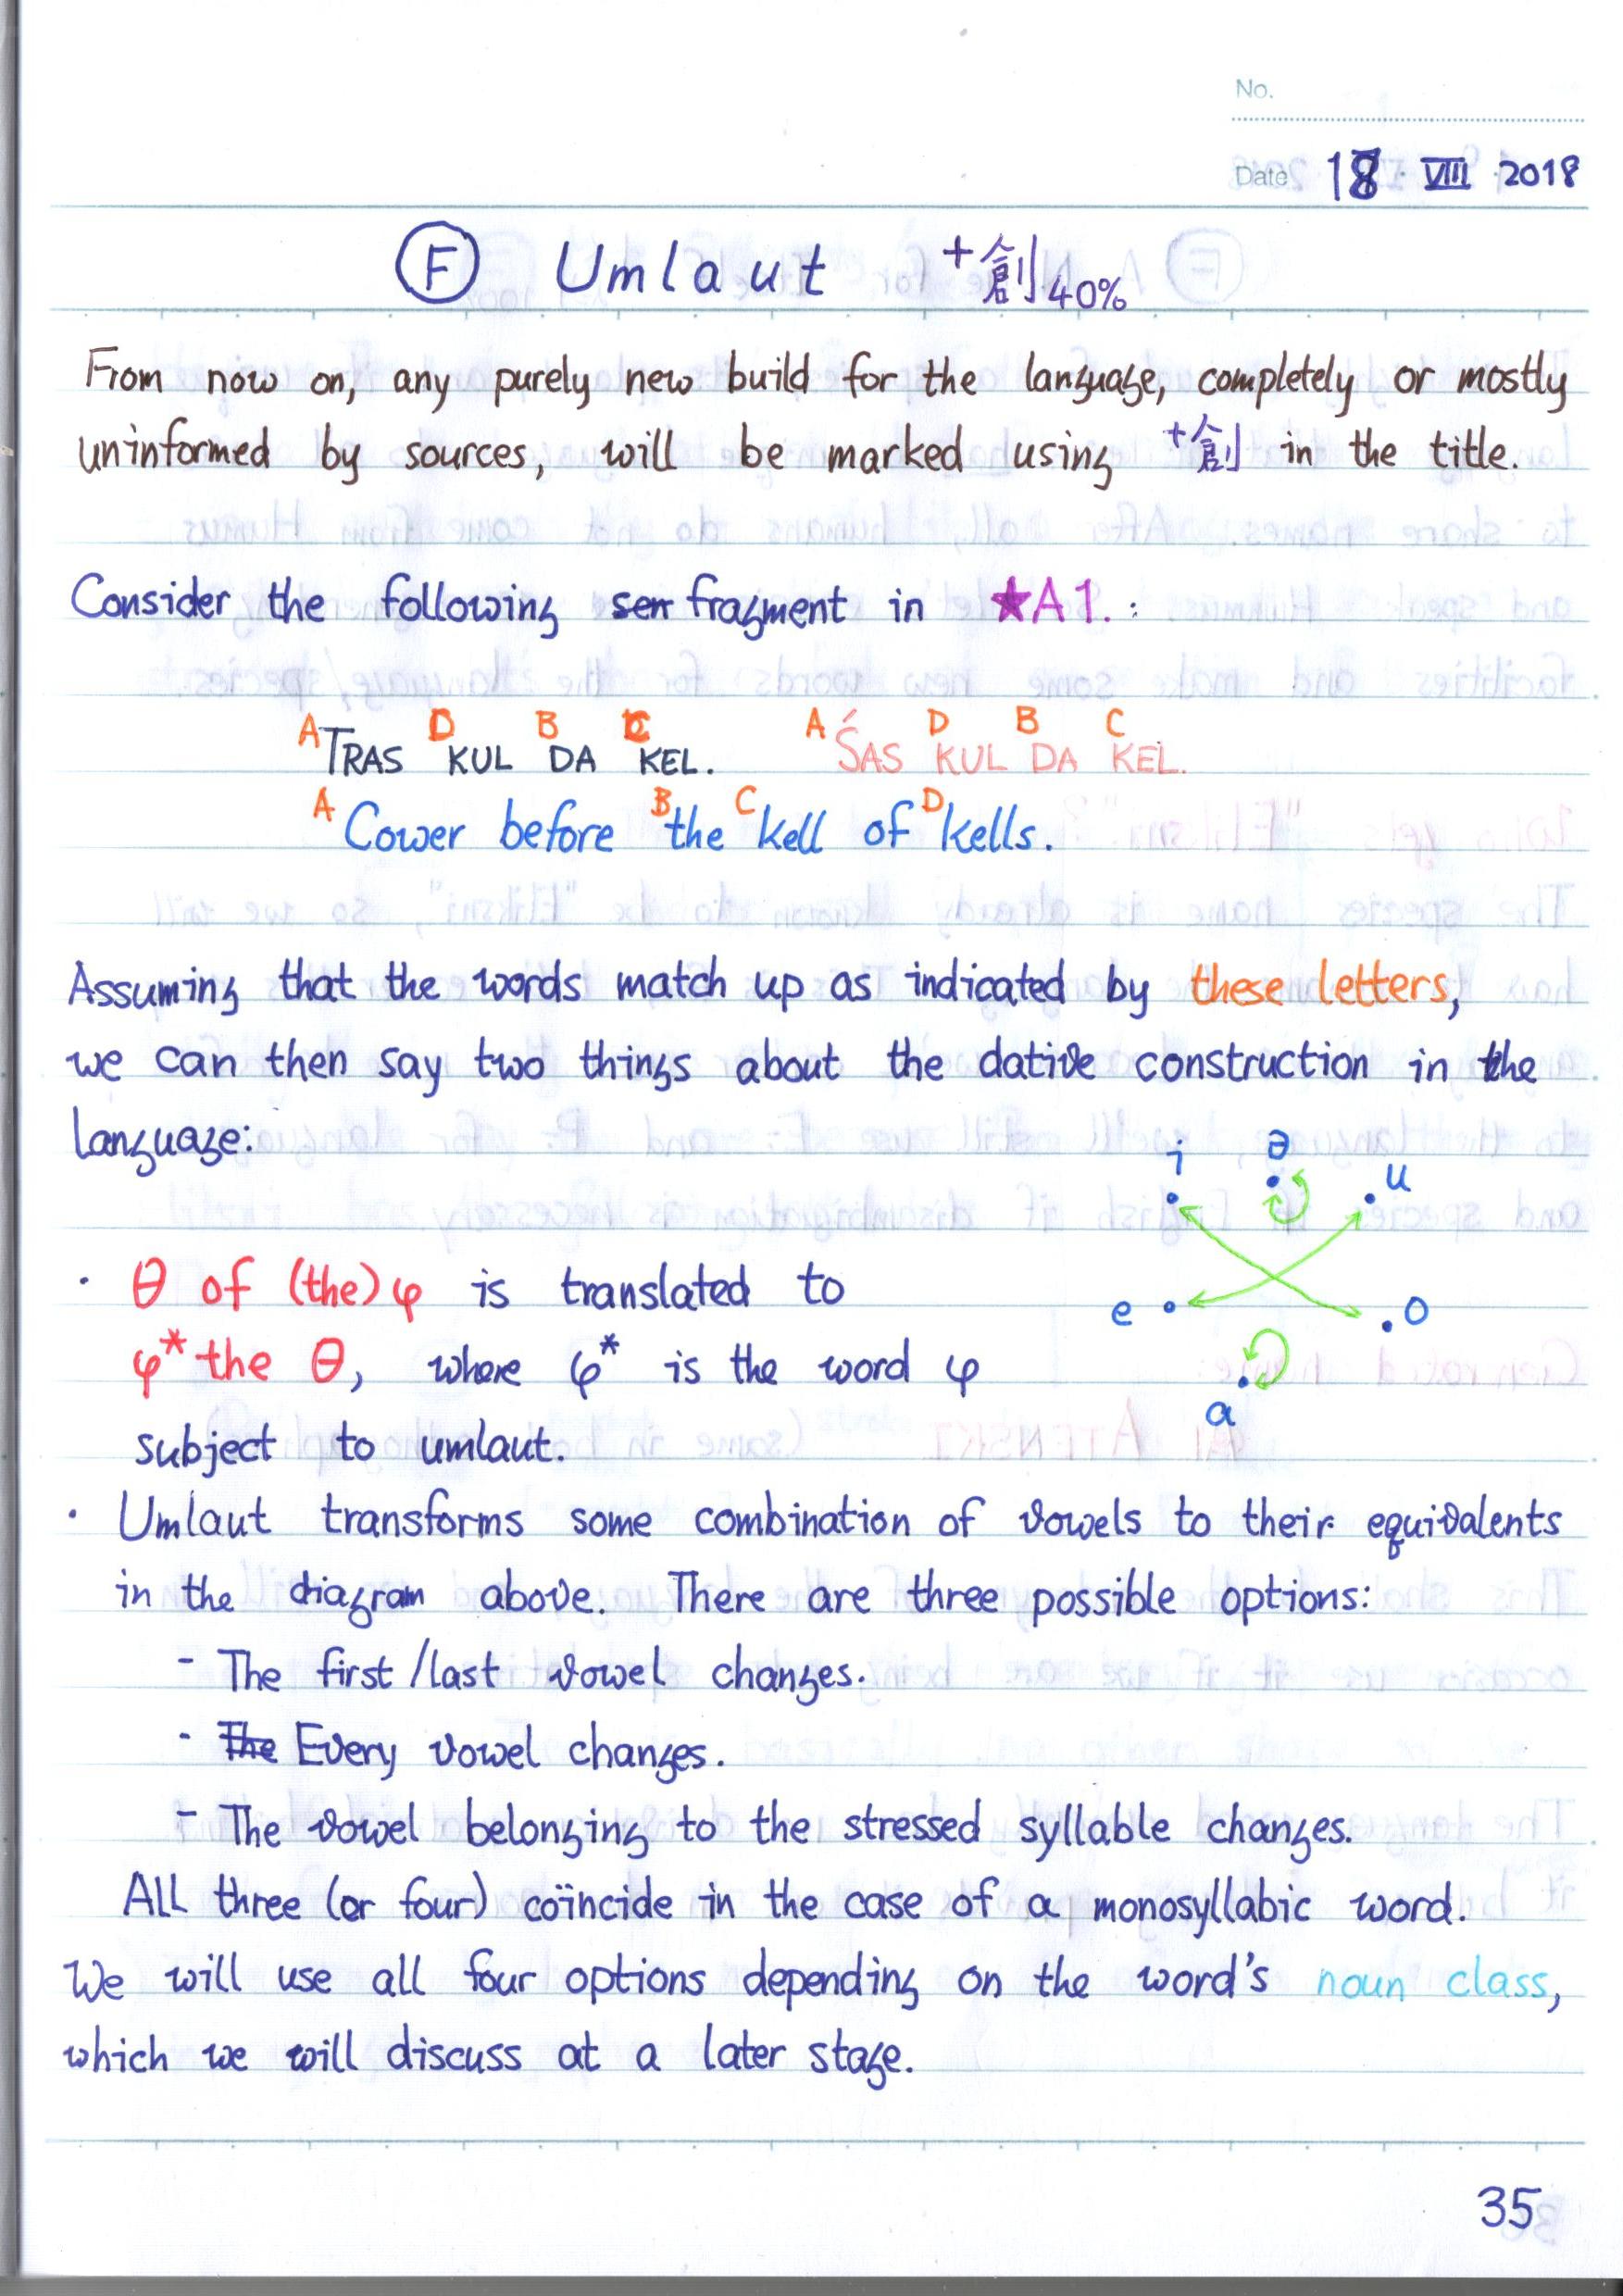 No.
Date 18 · VIII · 2018
F Umlaut +創 40%
From now on, any purely new build for the language, completely or mostly
uninformed by sources, will be marked using +創 in the title.
Consider the following fragment in ★A1. :
A D B C A D B C
TRAS KUL DA KEL. ŚAS KUL DA KEL.
A B C D
Cower before the kell of kells.
Assuming that the words match up as indicated by these letters,
we can then say two things about the dative construction in the
language:
i ə u
· θ of (the) φ is translated to
e o
φ* the θ, where φ* is the word φ
a
subject to umlaut.
· Umlaut transforms some combination of vowels to their equivalents
in the diagram above. There are three possible options:
- The first/last vowel changes.
- The Every vowel changes.
- The vowel belonging to the stressed syllable changes.
All three (or four) coïncide in the case of a monosyllabic word.
We will use all four options depending on the word's noun class,
which we will discuss at a later stage.
35